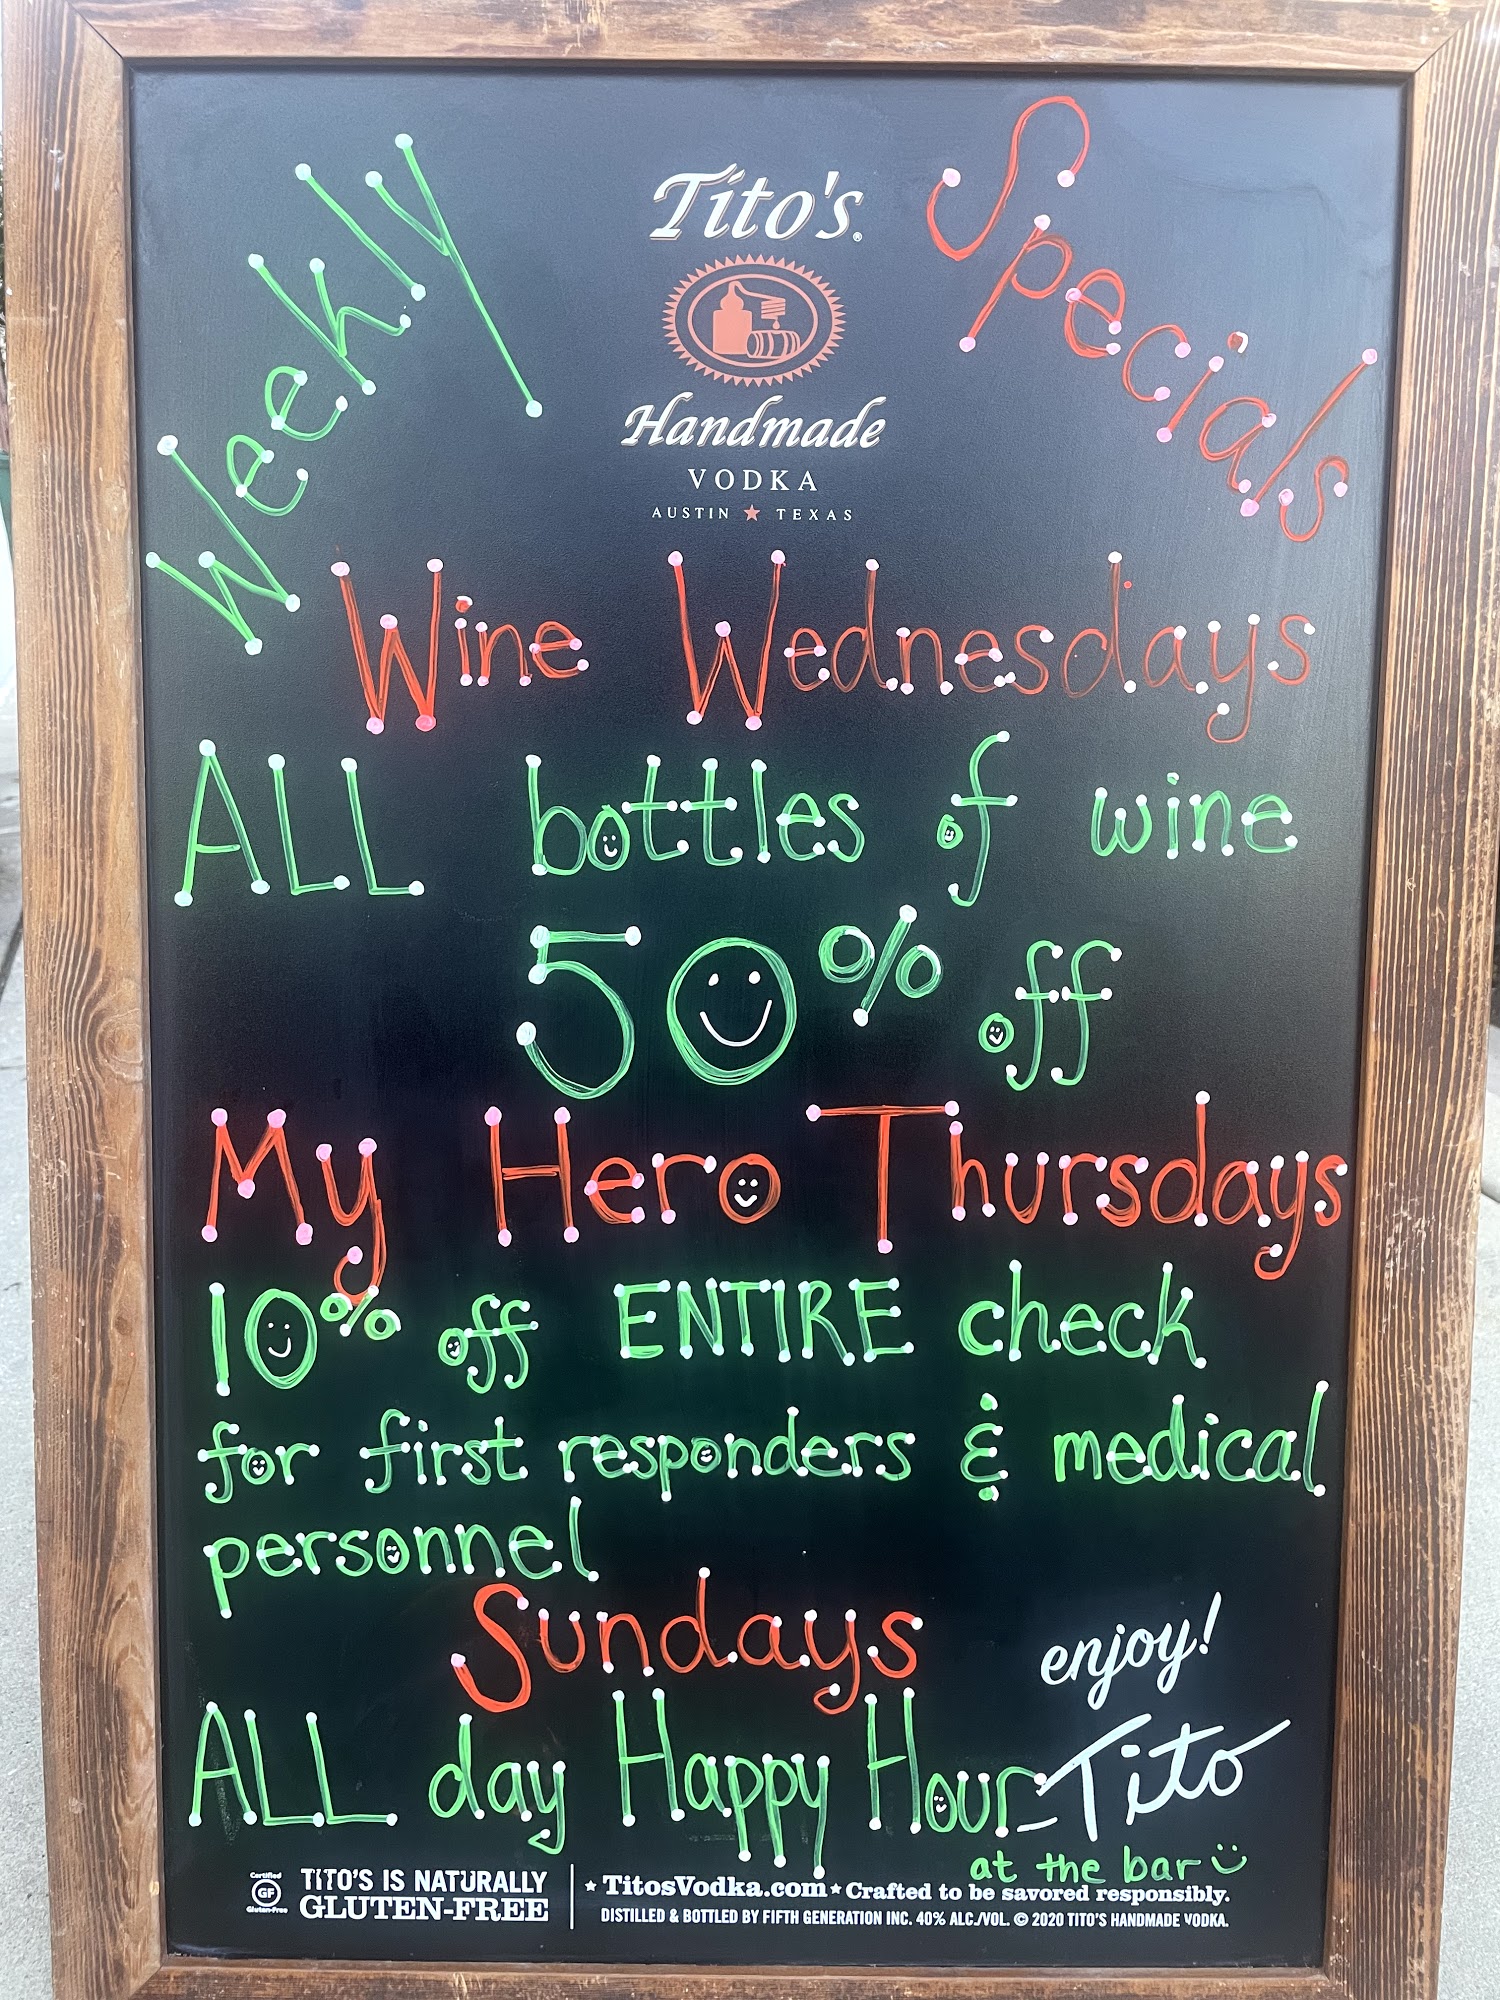 Weekly Specials
Tito's®
Handmade
VODKA
AUSTIN ★ TEXAS
Wine Wednesdays
ALL bottles of wine
50% off
My Hero Thursdays
10% off ENTIRE check
for first responders & medical
personnel
Sundays
enjoy!
ALL day Happy Hour
-Tito
at the bar
Certified
GF
Gluten-Free
TITO'S IS NATURALLY
GLUTEN-FREE
★ TitosVodka.com ★ Crafted to be savored responsibly.
DISTILLED & BOTTLED BY FIFTH GENERATION INC. 40% ALC./VOL. © 2020 TITO'S HANDMADE VODKA.